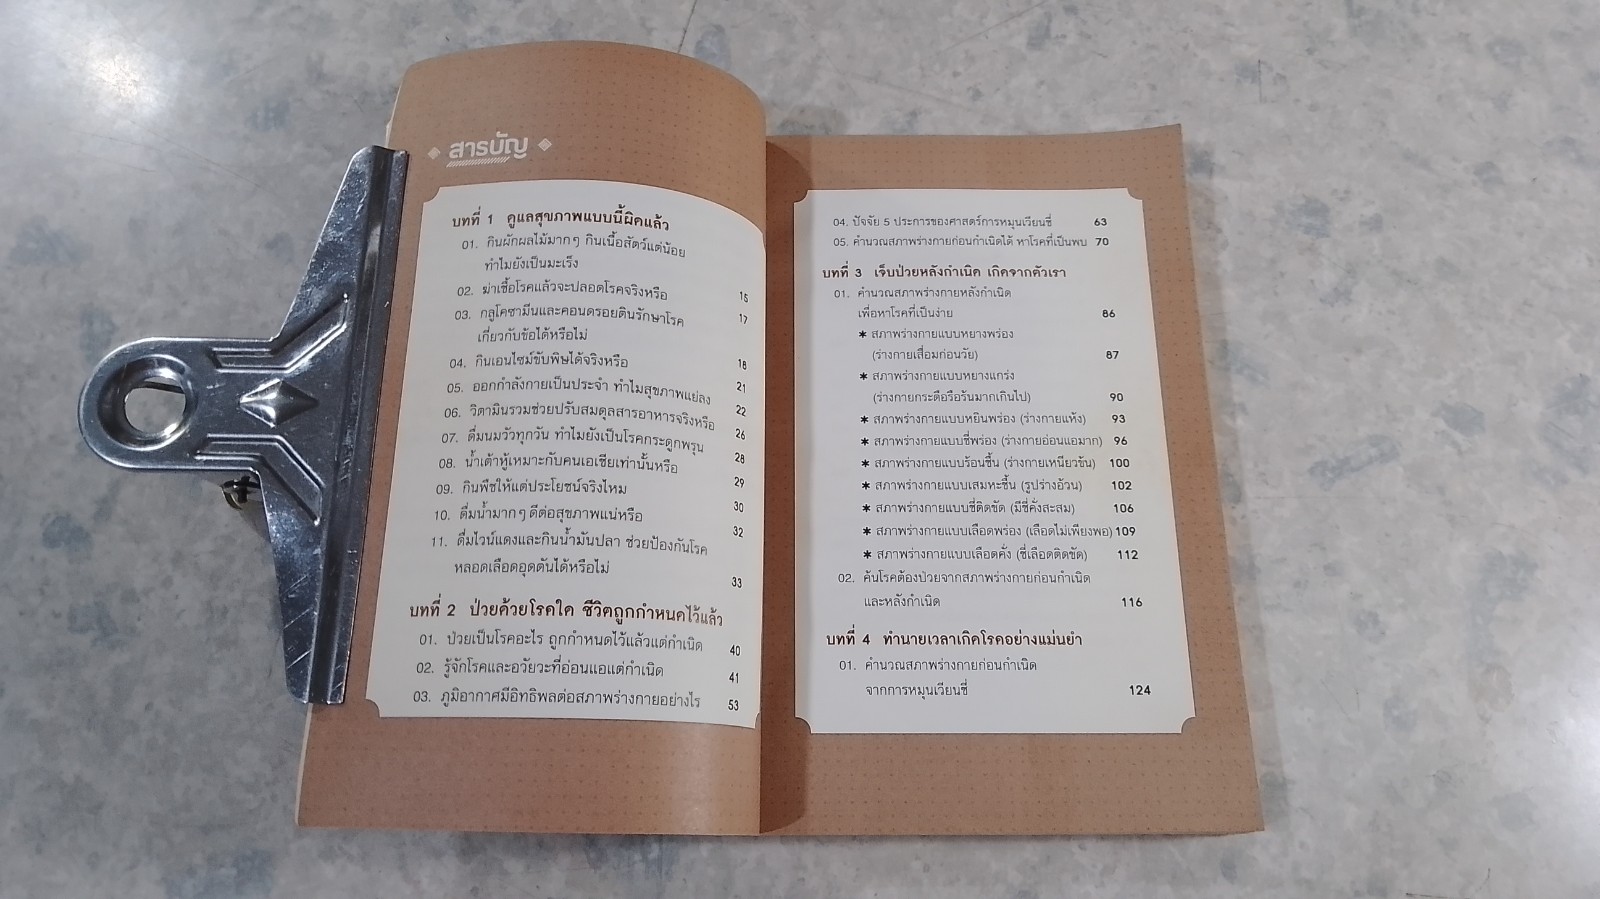 สารบัญ
บทที่ 1 ดูแลสุขภาพแบบนี้ผิดแล้ว
01. กินผักผลไม้มากๆ กินเนื้อสัตว์แต่น้อย
ทำไมยังเป็นมะเร็ง 15
02. ฆ่าเชื้อโรคแล้วจะปลอดโรคจริงหรือ 17
03. กลูโคซามีนและคอนดรอยตินรักษาโรค
เกี่ยวกับข้อได้หรือไม่ 18
04. กินเอนไซม์ขับพิษได้จริงหรือ 21
05. ออกกำลังกายเป็นประจำ ทำไมสุขภาพแย่ลง 22
06. วิตามินรวมช่วยปรับสมดุลสารอาหารจริงหรือ 26
07. ดื่มนมวัวทุกวัน ทำไมยังเป็นโรคกระดูกพรุน 28
08. น้ำเต้าหู้เหมาะกับคนเอเชียเท่านั้นหรือ 29
09. กินพืชให้แต่ประโยชน์จริงไหม 30
10. ดื่มน้ำมากๆ ดีต่อสุขภาพแน่หรือ 32
11. ดื่มไวน์แดงและกินน้ำมันปลา ช่วยป้องกันโรค
หลอดเลือดอุดตันได้หรือไม่ 33
บทที่ 2 ป่วยด้วยโรคใด ชีวิตถูกกำหนดไว้แล้ว
01. ป่วยเป็นโรคอะไร ถูกกำหนดไว้แล้วแต่กำเนิด 40
02. รู้จักโรคและอวัยวะที่อ่อนแอแต่กำเนิด 41
03. ภูมิอากาศมีอิทธิพลต่อสภาพร่างกายอย่างไร 53
04. ปัจจัย 5 ประการของศาสตร์การหมุนเวียนชี่ 63
05. คำนวณสภาพร่างกายก่อนกำเนิดได้ หาโรคที่เป็นพบ 70
บทที่ 3 เจ็บป่วยหลังกำเนิด เกิดจากตัวเรา
01. คำนวณสภาพร่างกายหลังกำเนิด
เพื่อหาโรคที่เป็นง่าย 86
✶ สภาพร่างกายแบบหยางพร่อง
(ร่างกายเสื่อมก่อนวัย) 87
✶ สภาพร่างกายแบบหยางแกร่ง
(ร่างกายกระตือรือร้นมากเกินไป) 90
✶ สภาพร่างกายแบบหยินพร่อง (ร่างกายแห้ง) 93
✶ สภาพร่างกายแบบชี่พร่อง (ร่างกายอ่อนแอมาก) 96
✶ สภาพร่างกายแบบร้อนชื้น (ร่างกายเหนียวข้น) 100
✶ สภาพร่างกายแบบเสมหะชื้น (รูปร่างอ้วน) 102
✶ สภาพร่างกายแบบชี่ติดขัด (มีชี่คั่งสะสม) 106
✶ สภาพร่างกายแบบเลือดพร่อง (เลือดไม่เพียงพอ) 109
✶ สภาพร่างกายแบบเลือดคั่ง (ชี่เลือดติดขัด) 112
02. ค้นโรคต้องป่วยจากสภาพร่างกายก่อนกำเนิด
และหลังกำเนิด 116
บทที่ 4 ทำนายเวลาเกิดโรคอย่างแม่นยำ
01. คำนวณสภาพร่างกายก่อนกำเนิด
จากการหมุนเวียนชี่ 124